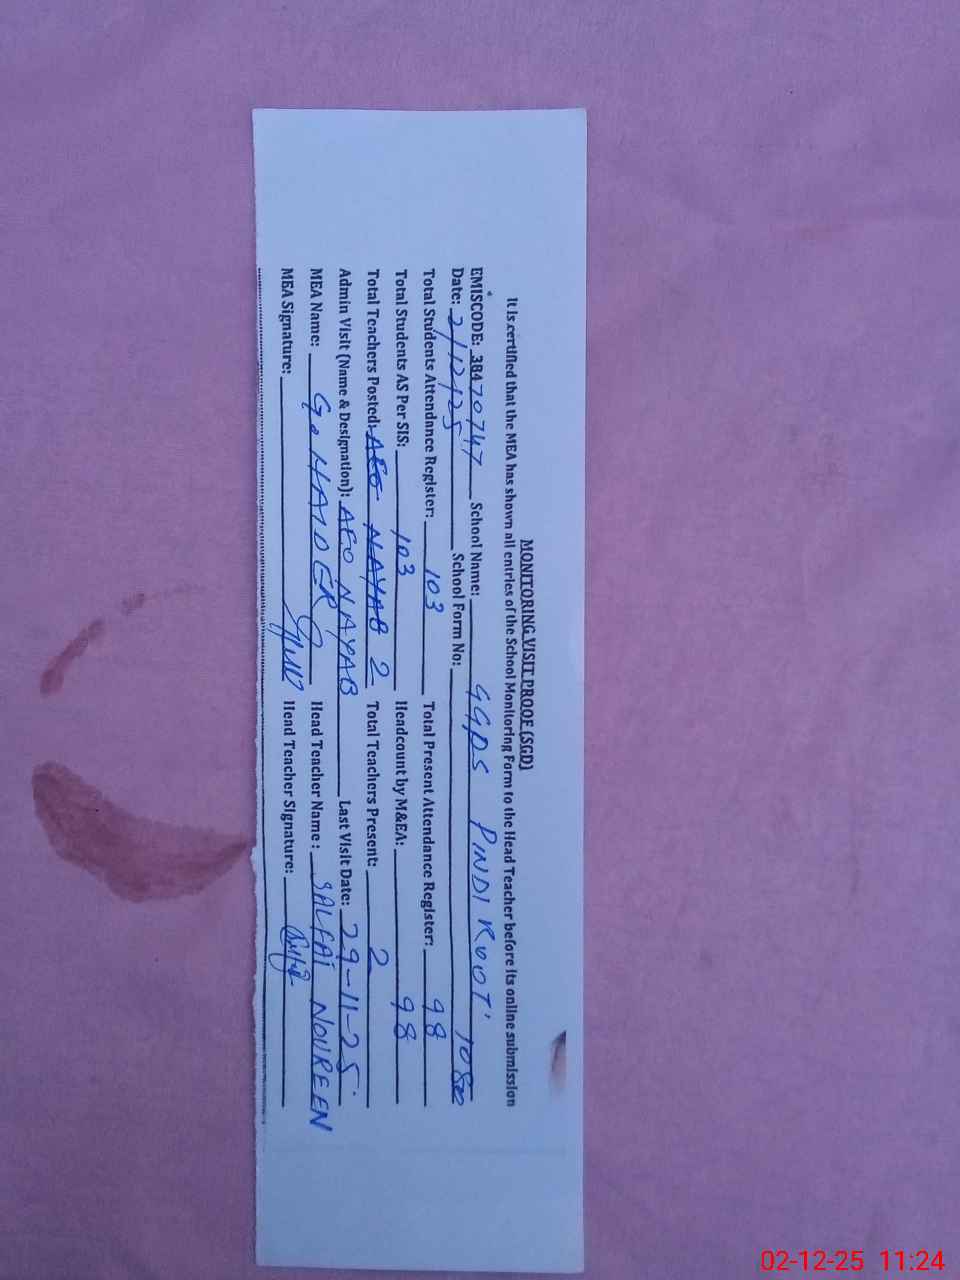 MONITORING VISIT PROOF (SGD)
It is certified that the MEA has shown all entries of the School Monitoring Form to the Head Teacher before its online submission
EMISCODE: 38470747 School Name: GGPS PINDI KOOT
Date: 2/12/25 School Form No:
Total Students Attendance Register: 103 Total Present Attendance Register: 98
Total Students AS Per SIS: 103 Headcount by M&EA: 98
Total Teachers Posted: AEO NAYAB 2 Total Teachers Present: 2
Admin Visit (Name & Designation): AEO NAYAB Last Visit Date: 29-11-25
MEA Name: G. HAIDER Head Teacher Name: NOUREEN
MEA Signature: Head Teacher Signature:
02-12-25 11:24